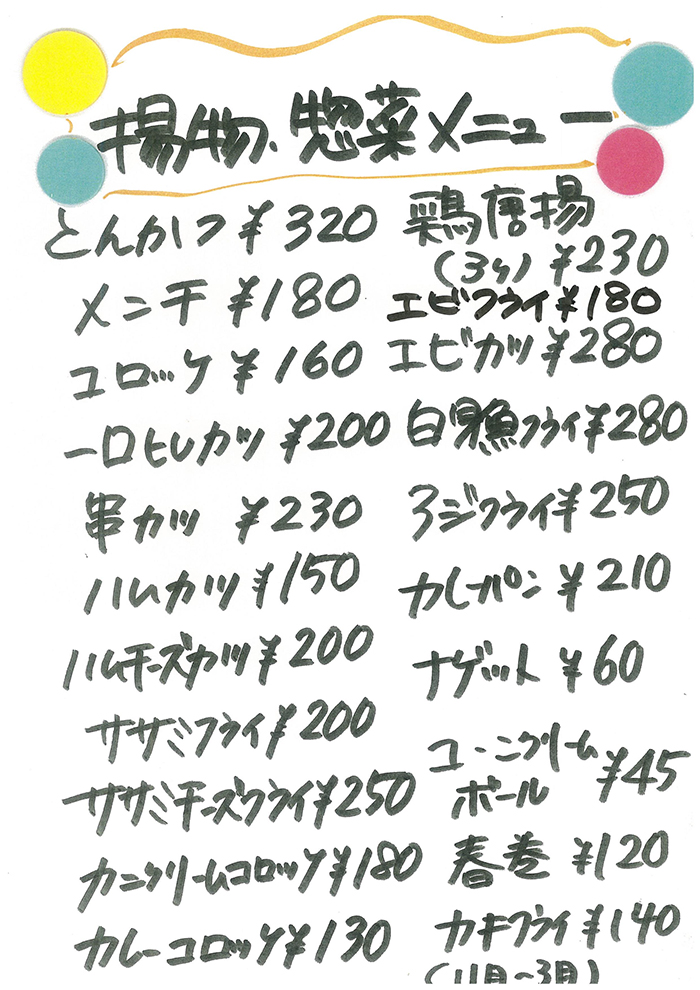 揚物、惣菜メニュー
とんかつ ¥320
メンチ ¥180
コロッケ ¥160
一口ヒレカツ ¥200
串カツ ¥230
ハムカツ ¥150
ハムチーズカツ ¥200
ササミフライ ¥200
ササミチーズフライ ¥250
カニクリームコロッケ ¥180
カレーコロッケ ¥130
鶏唐揚
(3ヶ) ¥230
エビフライ ¥180
エビカツ ¥280
白身魚フライ ¥280
アジフライ ¥250
カレーパン ¥210
ナゲット ¥60
コーンクリーム
ボール ¥45
春巻 ¥120
カキフライ ¥140
(11月~3月)